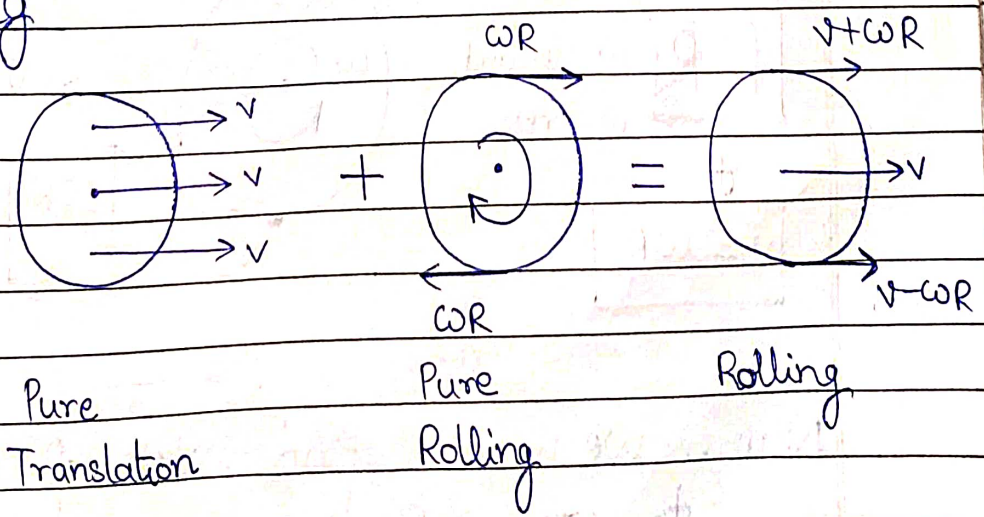 y
ωR
v+ωR
v
v
v
+
=
v
ωR
v-ωR
Pure
Translation
Pure
Rolling
Rolling